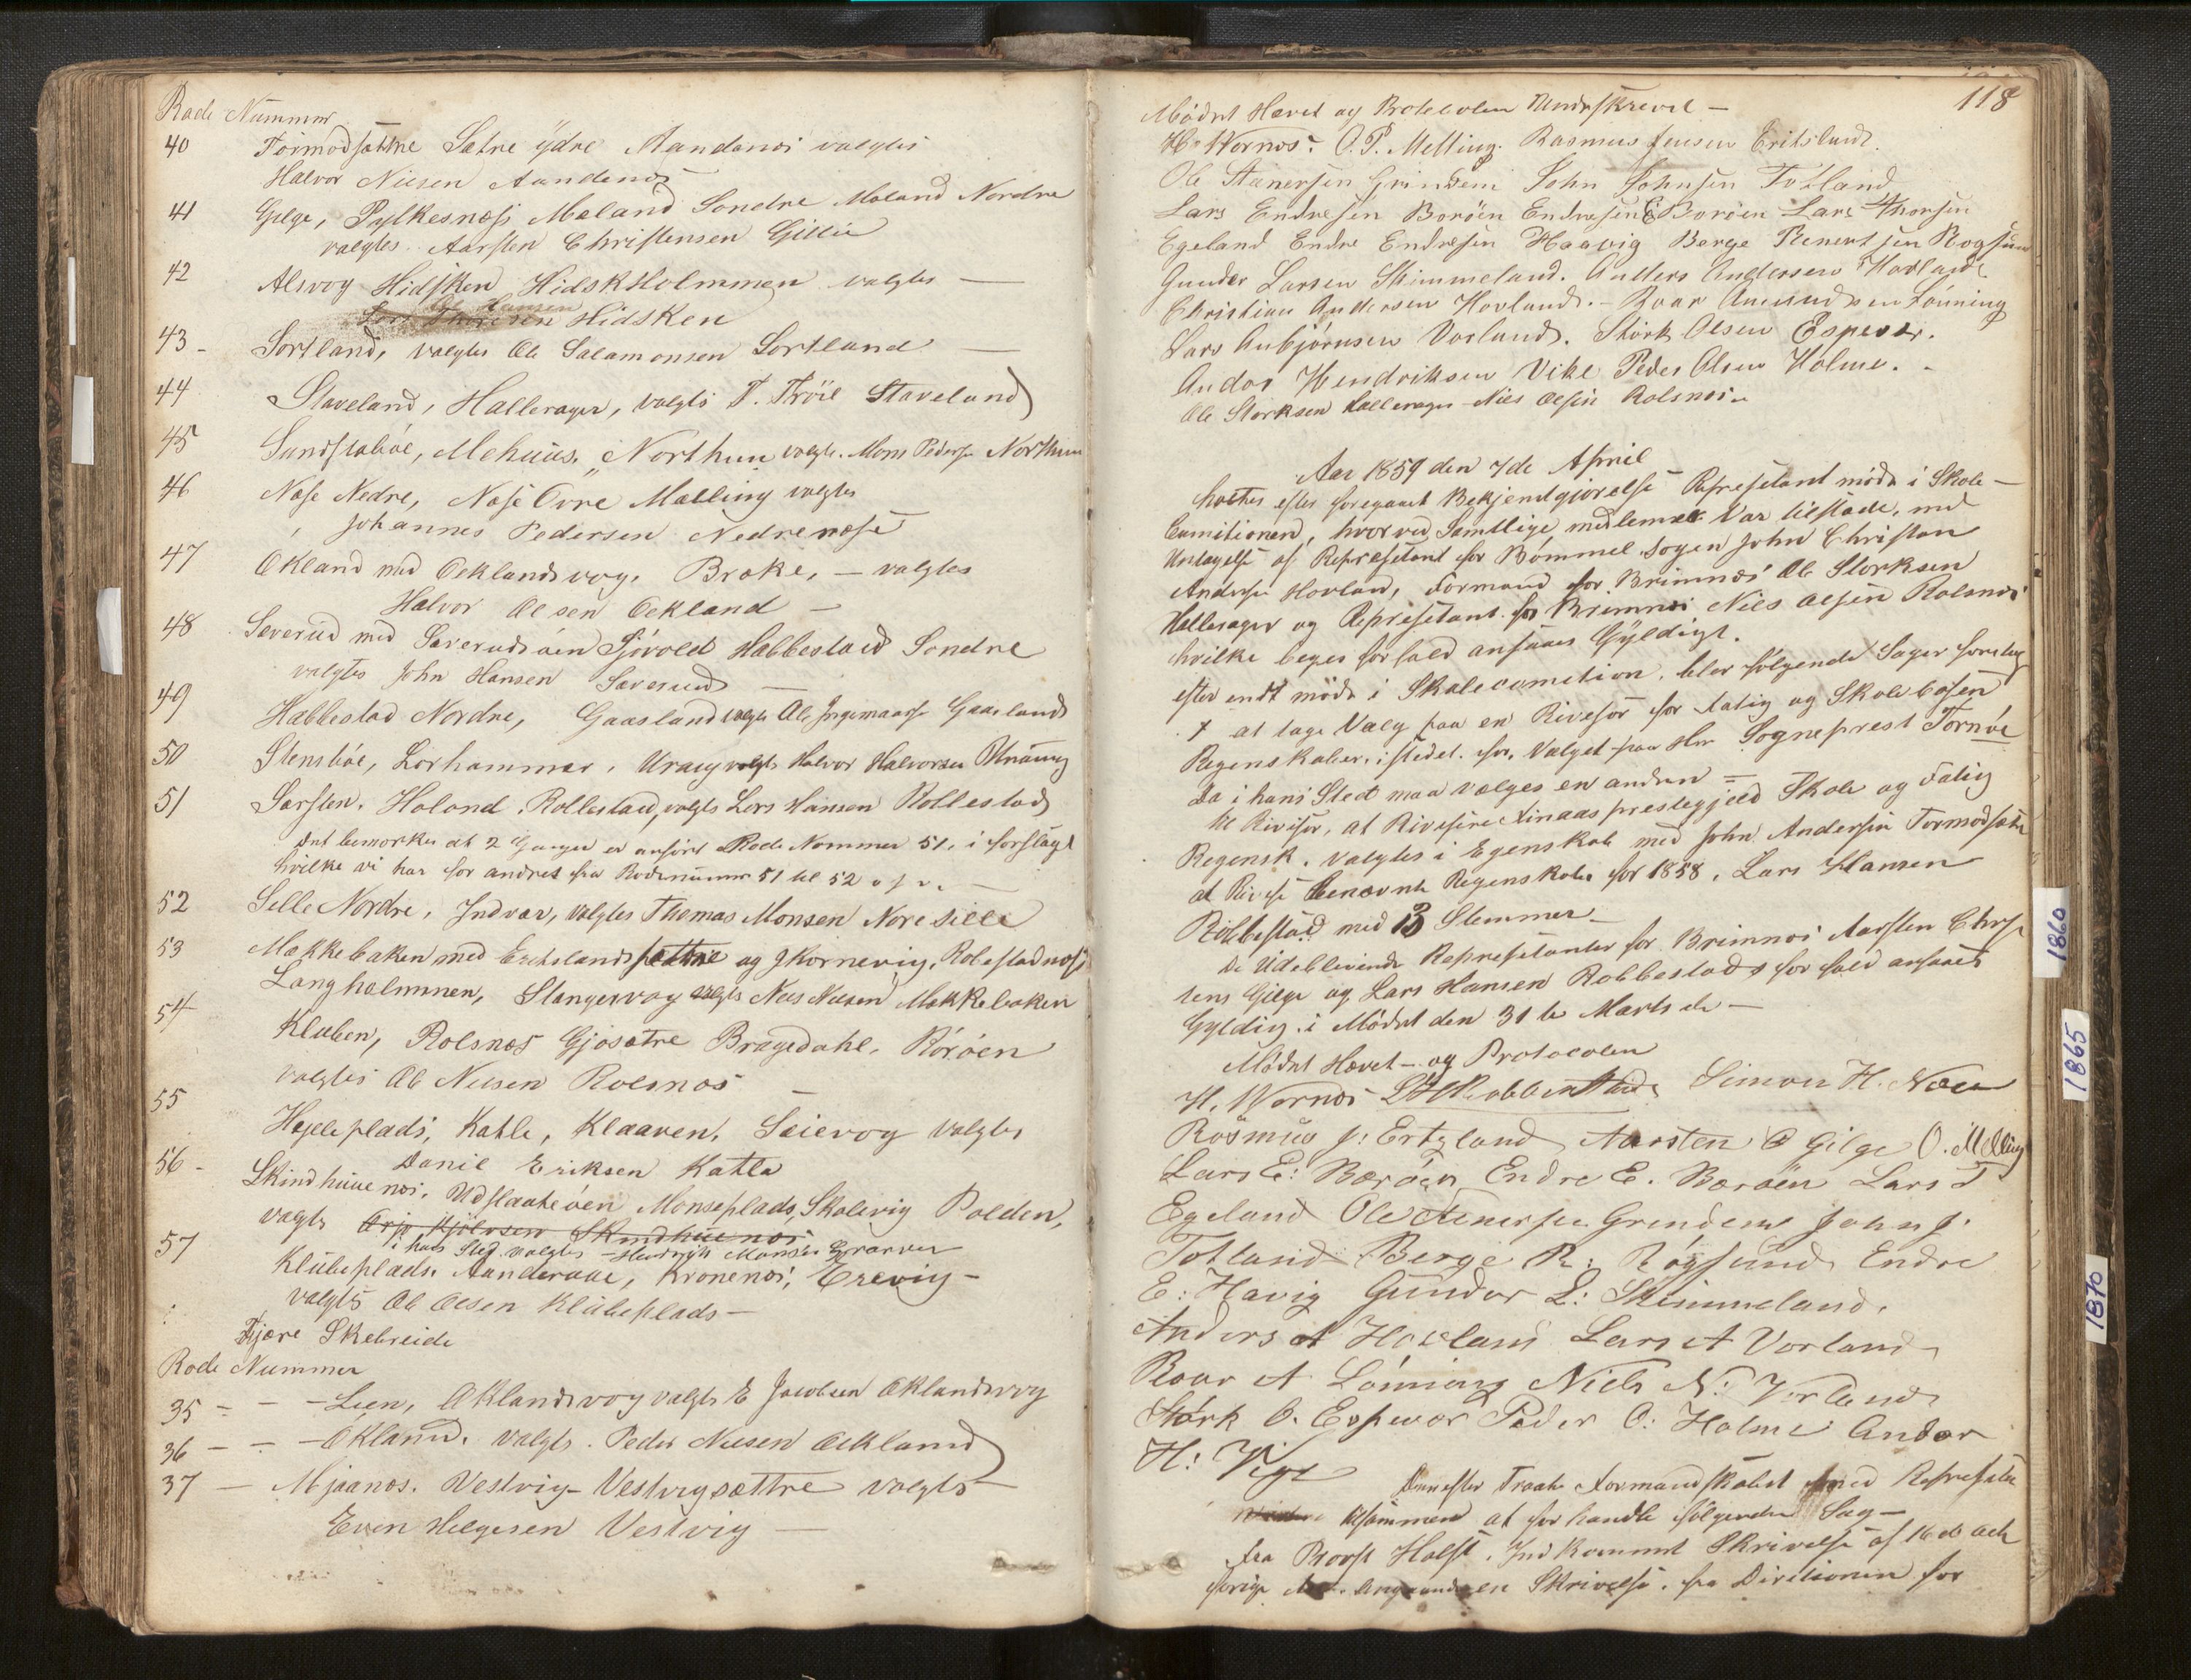 Rode Nummer
40 Tormodsættre Sætre ydre Aandanes valgtes
Halvor Nilsen Aandenes
41 Gilge, Pylkesnæs Mæland Søndre Mæland Nordre
valgtes Aarsten Christensen Gillie
42 Alsvog Hidsken HidskHolmmen valgtes —
Ole Hansen
Hidsken
43 - Sortland, valgtes Ole Salamonsen Sortland —
44 Staveland, Hallerager, valgts T. Trøie Staveland
45 Sundstabøe, Mehuus, Northun valgts. Mons Peders Northun
46 Nese Nedre, Nese Övre Mælling valgtes
Johannes Pedersen Nedrenese
47 Økland med Oeklandsvog, Broke, — valgtes
Halvor Olsen Oekland —
48 Sæverud med Sæverudsøen Sjövold Habbestad Søndre
valgtes John Hansen Sæverud —
49 Habbestad Nordre, Gaasland valgts Ole Ingemaars Gaasland
50 Stensbøe, Lorhammer, Urany valgts Halvor Halvorsen
51 Sarsten, Holand, Rollestad, valgts Lars Hansen Rollestad
Det bemærkes at 2 Gange er anført Rode Nommer 51, i forslaget
hvilke vi har for andret fra Rodenummer 51 til 52 o s v. —
52 Selle Nordre, Indvær, valgtes Thomas Monsen Nore Selle
53 Mækkebaken med og Skornevig, Robestadnes
Langholmmen, Slangevog valgts Nels Nilsen Mækkebaken
54 Kluben, Rolsnes Gjosætre Bragedahl, Rörøen
valgtes Ole Nilsen Rolsnæs —
55 Hageleplads, Katle, Klaaven, Seievog valgtes
Danil Eriksen Katla
56 - Skindhuuenes, Udslaateøen Monseplads, Skalevig Polden,
valgts Skindhuenes
i hans Sted valgtes Hendrik Monsen
57 Klubeplads, Aanderaae, Kronenes, Erevig —
valgtes Ole Olsen Klubeplads —
Fjære Skebreide
Rode Nummer
35 - - - Lien, Oklandsvog valgts E Jacobsen Oklandsvog
36 - - - Økland, valgts. Peder Nilsen Oekland
37 — Mjaanes, Vestvig Vestvigsættre valgts —
Even Helgesen Vestvig —
118
Mødet Hævet og Protocolen Underskrevet —
H. Wernøs. O. P. Melling. Rasmus Jensen Eritsland.
Ole Stanersen Grindem John Johnsen Totland
Lars Endresen Borøen Endre E Borøen Lars Thorsen
Egeland Endre Endresen Haavig Berge Renertsen Rogsund
Gunder Larsen Skimmeland. Anders Andersen Havland
Christian Andersen Hovland. — Roar Amundsen Lønning
Lars Anbjørnsen Vorland. Størk Olsen Espever.
Andor Hendriksen Vike Peder Olsen Holme. -
Ole Storksen Hallerager Niels Olsen Rolsnes
Aar 1859 den 7de April
holtes efter foregaaet Bekjendtgjørelse Represetant møde i Skole-
Comitionen, hvorved Samtlige medlemer var tilstæde, med
Untagelse af Represetant for Bömmel sogen John Christan
Anders Hovland, Formand for Brimnes Ole Storksen
Hallerager og Represetant for Bremnes Niels Olsen Rolsnes
hvilke beges forfald ansaaes Gyldigt.
efter endt møde i Skolecomition, blev følgende Sager foretag
1 at tage Valg paa en Rivesor for fatig og Skolekasen
Regenskaber, istedet for, Valget paa Hr Sogneprest Tornøe
da i hans Sted maa vælges en anden =
til Rivisor, at Rivisere Finaas presteggjeld Skole og Fatig
Regensk. valgtes i Egenskab med John Andersen Tormodsæt
at Rivise benævnte Regenskaber for 1858, Lars Hansen
Robbestad med 13 Stemmer —
De Udeblevende Represetanter for Brimnes Aarsten Chris
tens Gilge og Lars Hansen Robbestads forfald ansaaet
Gyldig i Mødet den 31te Marts de —
Mødet Hævet — og Protocolen
H. Wernøs L H Robbenstad Simon H. Næss
Rasmus J: Ertzland Aarsten C Gilge O. Melling
Lars E: Bærøen Endre E. Børøen Lars T
Egeland Ole Stenersen Grendem John J.
Totland Berge R: Røgsund Endre
E: Havig Gunder L: Skimmeland.
Anders A Hovland Lars A Vorland
Roar A Lönning Niels N: Vorland
Størk O. Espevær Peder O: Holme Andor
H: Vige
Derefter Traate Formandskabet med Represeta
tilsammen at forhandle følgende Sag —
fra Provst Holst, Indkommet Skrivelse af 16de
forige angaaende en Skrivelse fra Diritionen for
1860
1865
1870